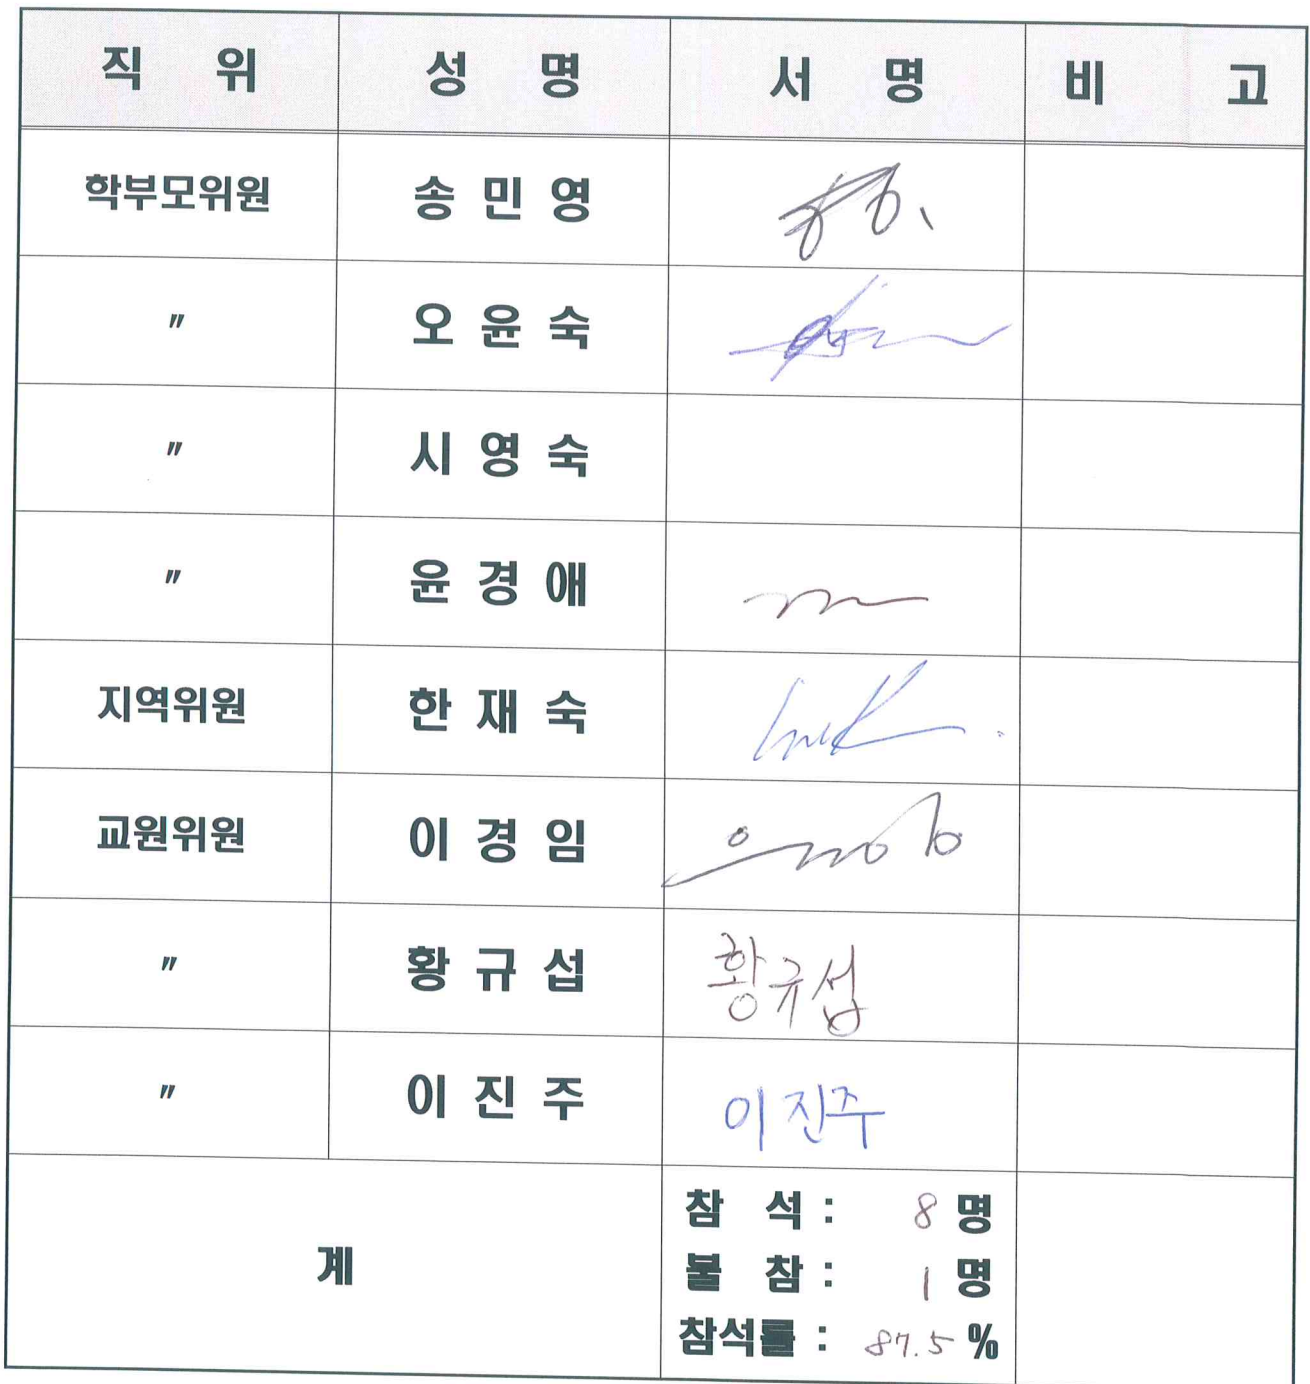 직 위 성 명 서 명 비 고
학부모위원 송 민 영
〃 오 윤 숙
〃 시 영 숙
〃 윤 경 애
지역위원 한 재 숙
교원위원 이 경 임
〃 황 규 섭 황규섭
〃 이 진 주 이진주
계
참 석 : 8 명
불 참 : 1 명
참석률 : 87.5 %